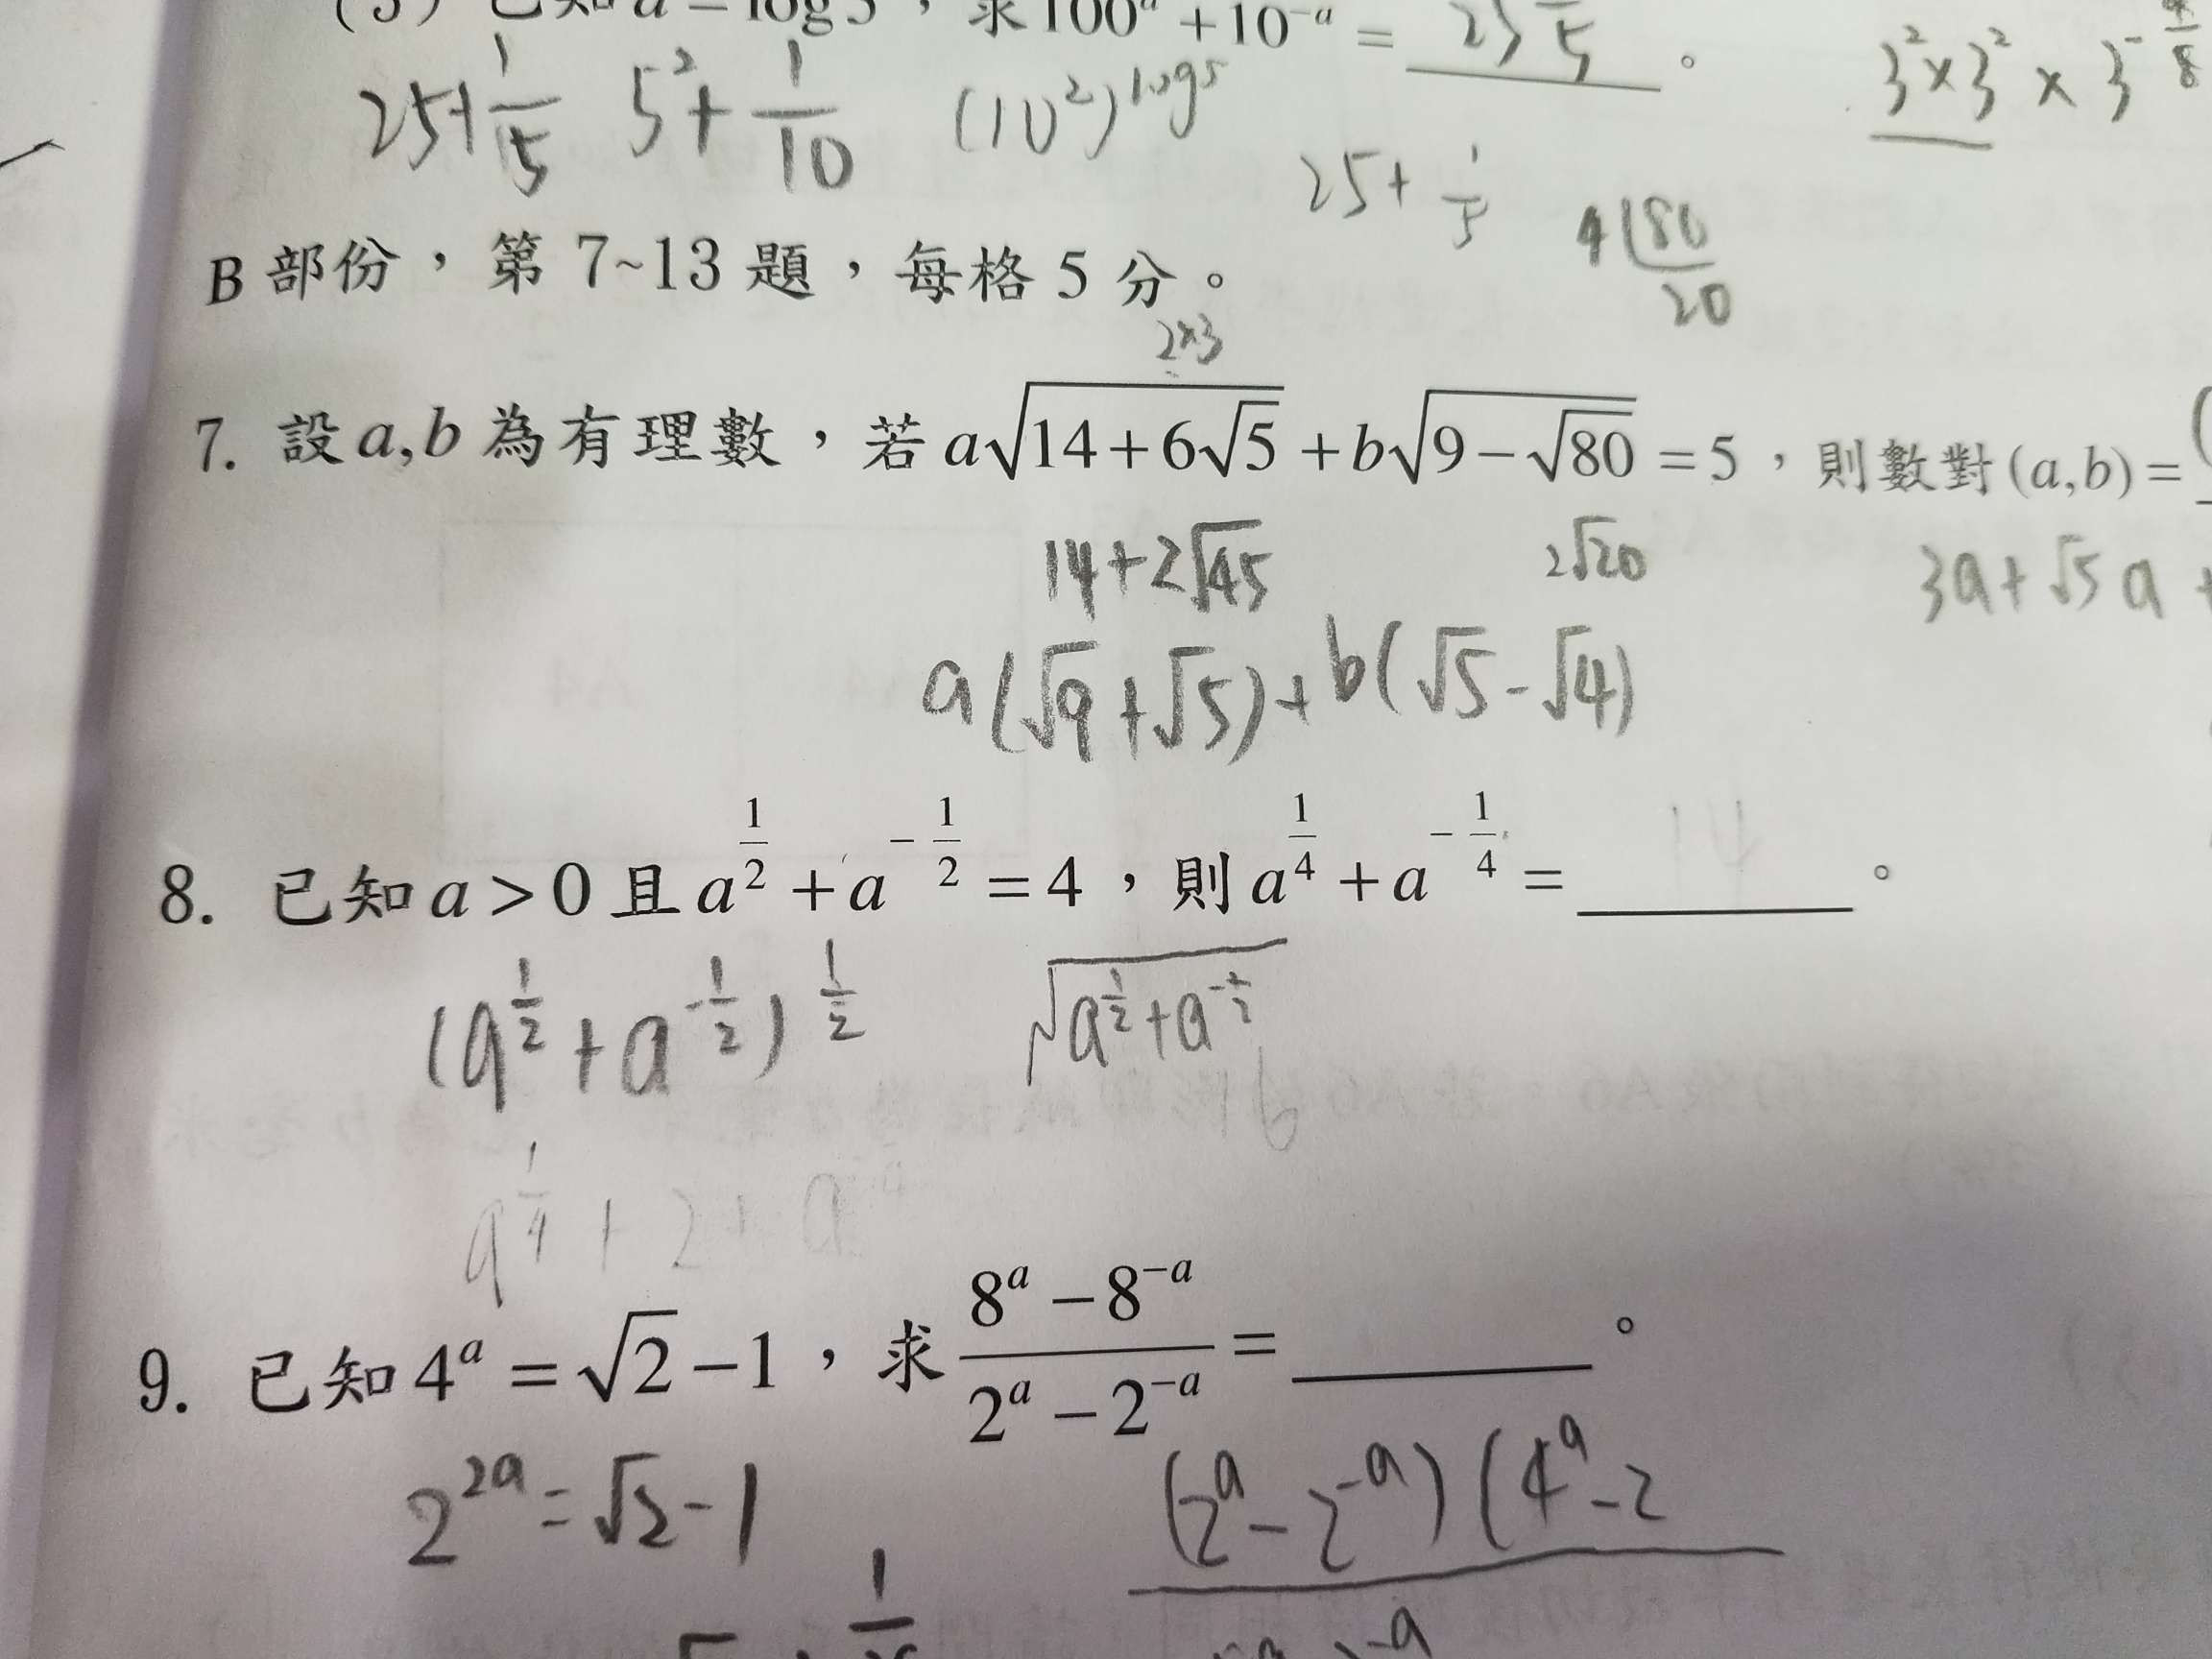 求 100^a + 10^{-a} = 25 1/5 。
3² × 3² × 3^-
25+ 1/5 5² + 1/10 (10²)^{log5}
25+ 1/5
4 80
20
B 部份，第 7~13 題，每格 5 分。
2×3
7. 設 a,b 為有理數，若 a√(14+6√5) + b√(9-√80) = 5，則數對 (a,b) =
14+2√45 2√20 3a+√5 a +
a(√9+√5)+b(√5-√4)
8. 已知 a > 0 且 a^{1/2} + a^{-1/2} = 4，則 a^{1/4} + a^{-1/4} = 14 。
(a^{1/2} + a^{-1/2})^{1/2} √(a^{1/2}+a^{-1/2})
16
a^{1/4} + 2 + a
9. 已知 4^a = √2 - 1，求 (8^a - 8^{-a})/(2^a - 2^{-a}) = 。
2^{2a} = √2 - 1 (2^a - 2^{-a}) (4^a - 2